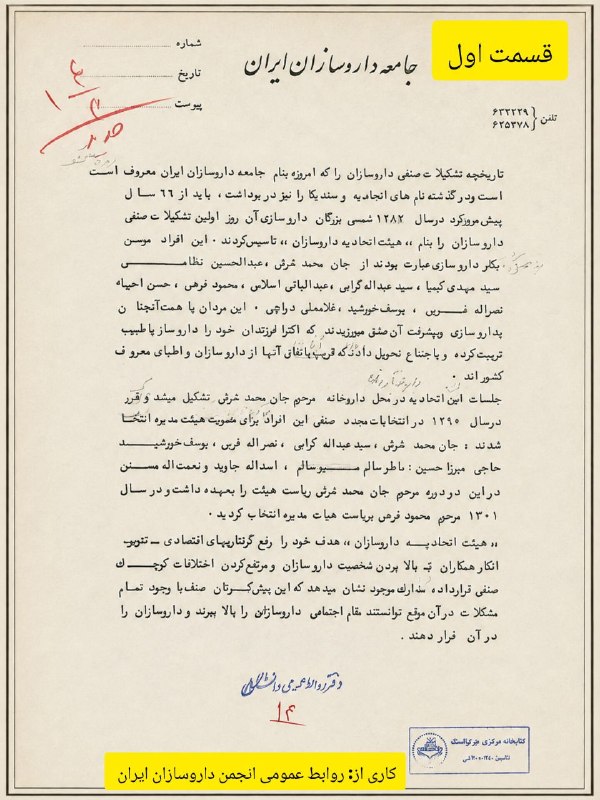 قسمت اول
جامعه داروسازان ایران
شماره
تاریخ
پیوست
تلفن
۶۳۲۲۲۹
۶۲۵۳۷۸
تاریخچه تشکیلات صنفی داروسازان را که امروزه بنام جامعه داروسازان ایران معروف است
است ودر گذشته نام های اتحادیه و سندیکا را نیز در بوداشت ، باید از ۶۶ سال
پیش مرورکرد درسال ۱۲۸۲ شمسی بزرگان داروسازی آن روز اولین تشکیلات صنفی
داروسازان را بنام ،، هیئت اتحادیه داروسازان ،، تاسیس کردند . این افراد موسس
داروسازی عبارت بودند از جان محمد شرش ، عبدالحسین نظامی
سید مهدی کیمیا ، سید عبداله گرابی ، عبدالباقی اسلامی ، محمود فرهی ، حسن احیاء
نصراله ، یوسف خورشید ، غلامعلی دراچی . این مردان با همت آنچنان
بداروسازی وپیشرفت آن عشق میورزیدند که اکثرا فرزندان خود را داروساز یا طبیب
تربیت کرده و باجتماع تحویل دادند که قریب باتفاق آنها از داروسازان و اطبای معروف
کشور اند .
جلسات این اتحادیه در محل داروخانه مرحوم جان محمد شرش تشکیل میشد و
درسال ۱۲۹۵ در انتخابات مجدد صنفی این افراد برای عضویت هیئت مدیره انتخاب
شدند : جان محمد شرش ، سید عبداله کرابی ، نصراله ، یوسف خورشید
حاجی میرزا حسین : ماطر سالم مسیو سالم ، اسداله جاوید و نعمت اله
در این دو دوره مرحوم جان محمد شرش ریاست هیئت را بعهده داشت و در سال
۱۳۰۱ مرحوم محمود فرهی بریاست هیات مدیره انتخاب کردید .
،، هیئت اتحادیه داروسازان ،، هدف خود را رفع گرفتاریهای اقتصادی ـ تنویر
افکار همکاران بالا بردن شخصیت داروسازان و مرتفع کردن اختلافات کوچک
صنفی قرارداده مدارک موجود نشان میدهد که این پیش کسوتان صنف با وجود تمام
مشکلات در آن موقع توانستند مقام اجتماعی داروسازان را بالا ببرند و داروسازان را
در آن قرار دهند .
۱۴
کتابخانه مرکزی
کاری از: روابط عمومی انجمن داروسازان ایران